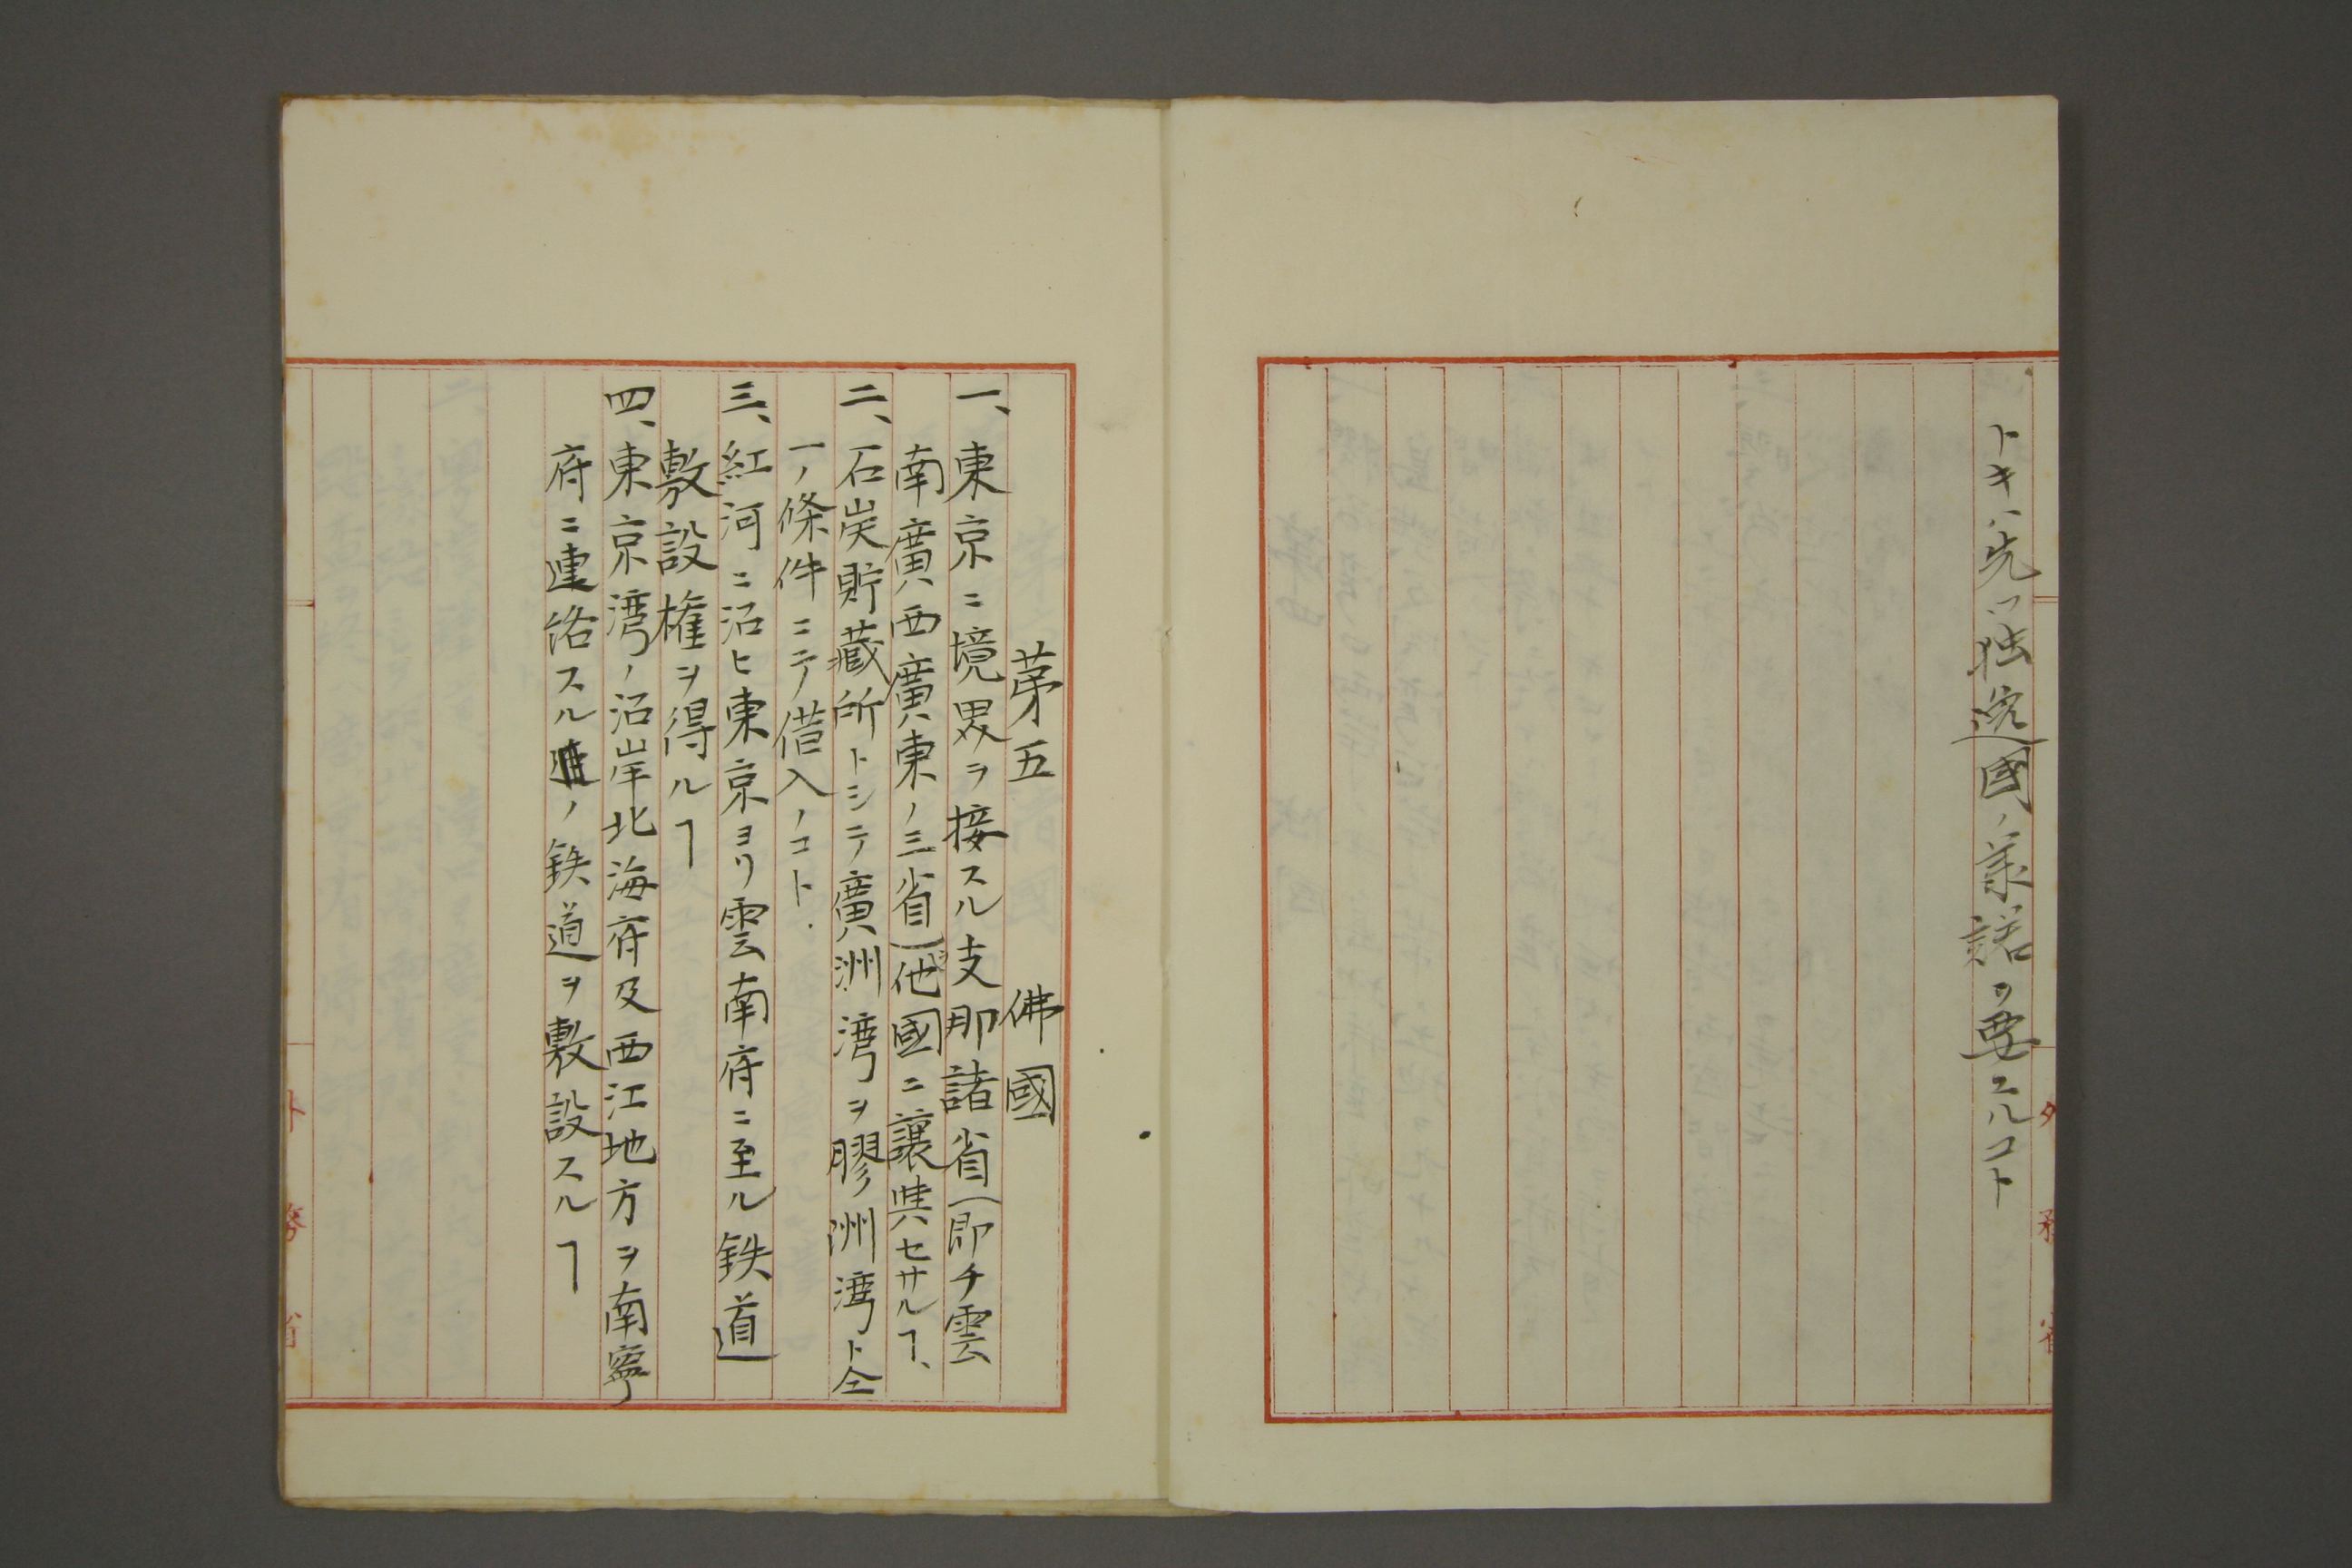 トキハ先ツ独逸國ノ承諾ヲ要スルコト
外務省
第五　佛國
一、東京ニ境界ヲ接スル支那諸省(即チ雲
南廣西廣東ノ三省)他國ニ讓與セサルヿ、
二、石炭貯蔵所トシテ廣洲湾ヲ膠洲湾ト仝
一ノ條件ニテ借入ノコト.
三、紅河ニ沿ヒ東京ヨリ雲南府ニ至ル鉄道
敷設権ヲ得ルヿ
四、東京湾ノ沿岸北海府及西江地方ヲ南寧
府ニ連絡スルノ鉄道ヲ敷設スルヿ
外務省